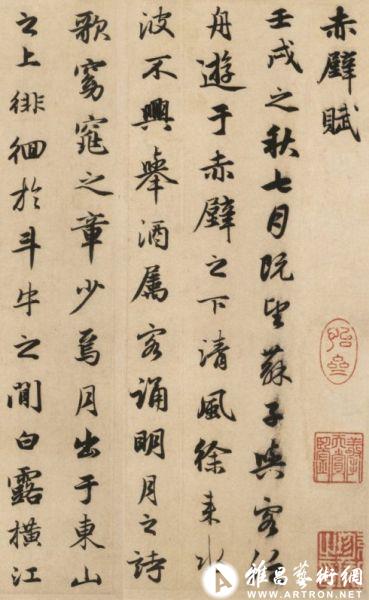 赤壁賦
壬戌之秋七月既望蘇子與客泛
舟遊于赤壁之下清風徐来水
波不興舉酒属客誦明月之詩
歌窈窕之章少焉月出于東山
之上徘徊於斗牛之間白露橫江
雅昌藝術網
WWW.ARTRON.NET